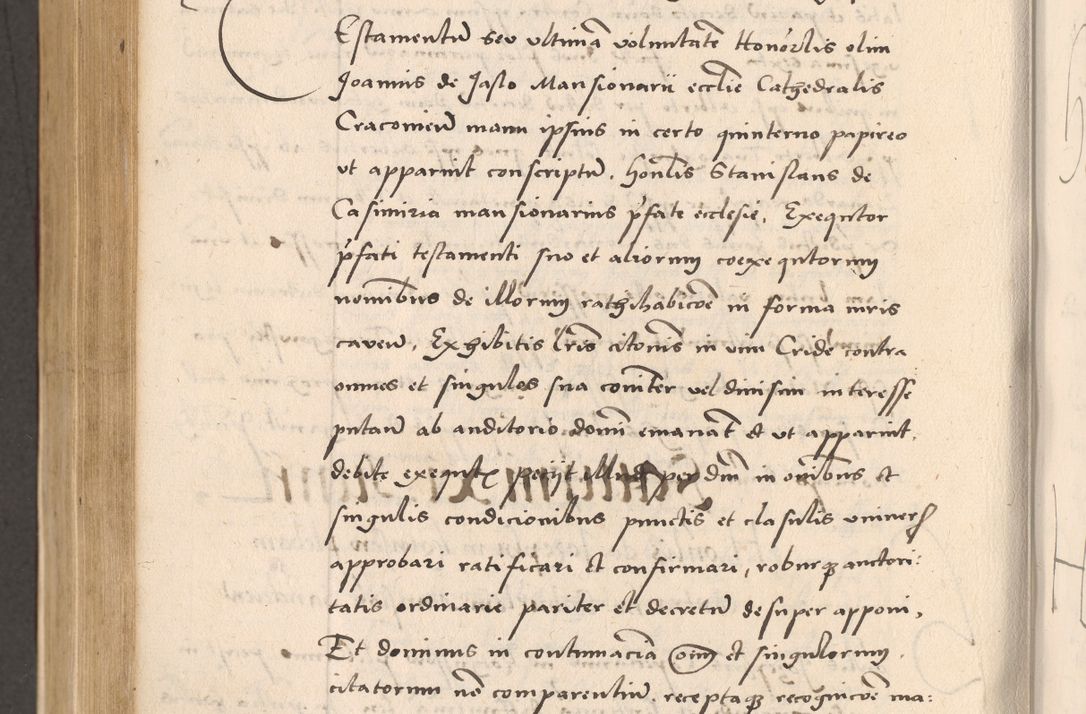 Estamentũ seu ultimã voluntatẽ Honorłis olim
Joannis de Jaslo Mansionarii ecclie Cathedralis
Cracovieñ manu ipsius in certo quinterno papireo
ut apparuit conscriptũ, honłis Stanislaus de
Casimiria mansionarius pfate ecclesie, Exequtor
pfati testamenti suo et aliorum coexequtorum
nominibus de illorum rathihabicõe in forma iuris
caveñ, Exhibitis łris citonis in vim Cride contra
omnes et singulos sua coniter vel divisim interesse
putañ ab auditorio domi emanat et ut apparuit
debite exequt petijt illud per dm in omibus et
singulis condicionibus punctis et clasulis univers
approbari ratificari et confirmari, roburq auctori:
tatis ordinarie pariter et decretũ desuper apponi,
Et dominus in contumacia oim et singulorum
citatorum nõ comparentiũ, receptaq recognicõe ma: